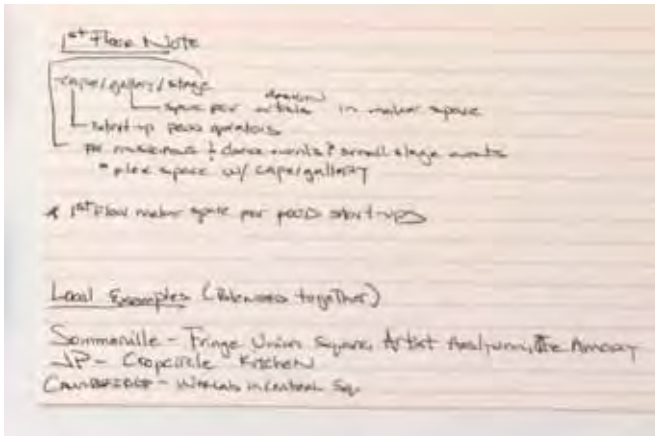 1st Floor Note
-cafe/gallery/stage
design
space for artists in maker space
start-up food operators
for musicians + dance events & small stage events
* flex space w/ cafe/gallery
* 1st Floor maker space for food start-ups
Local Examples (together)
Sommerville - Fringe Union Square, Artist Asylum, the Armory
JP - Cropcircle Kitchen
Cambridge - in Central Sq.